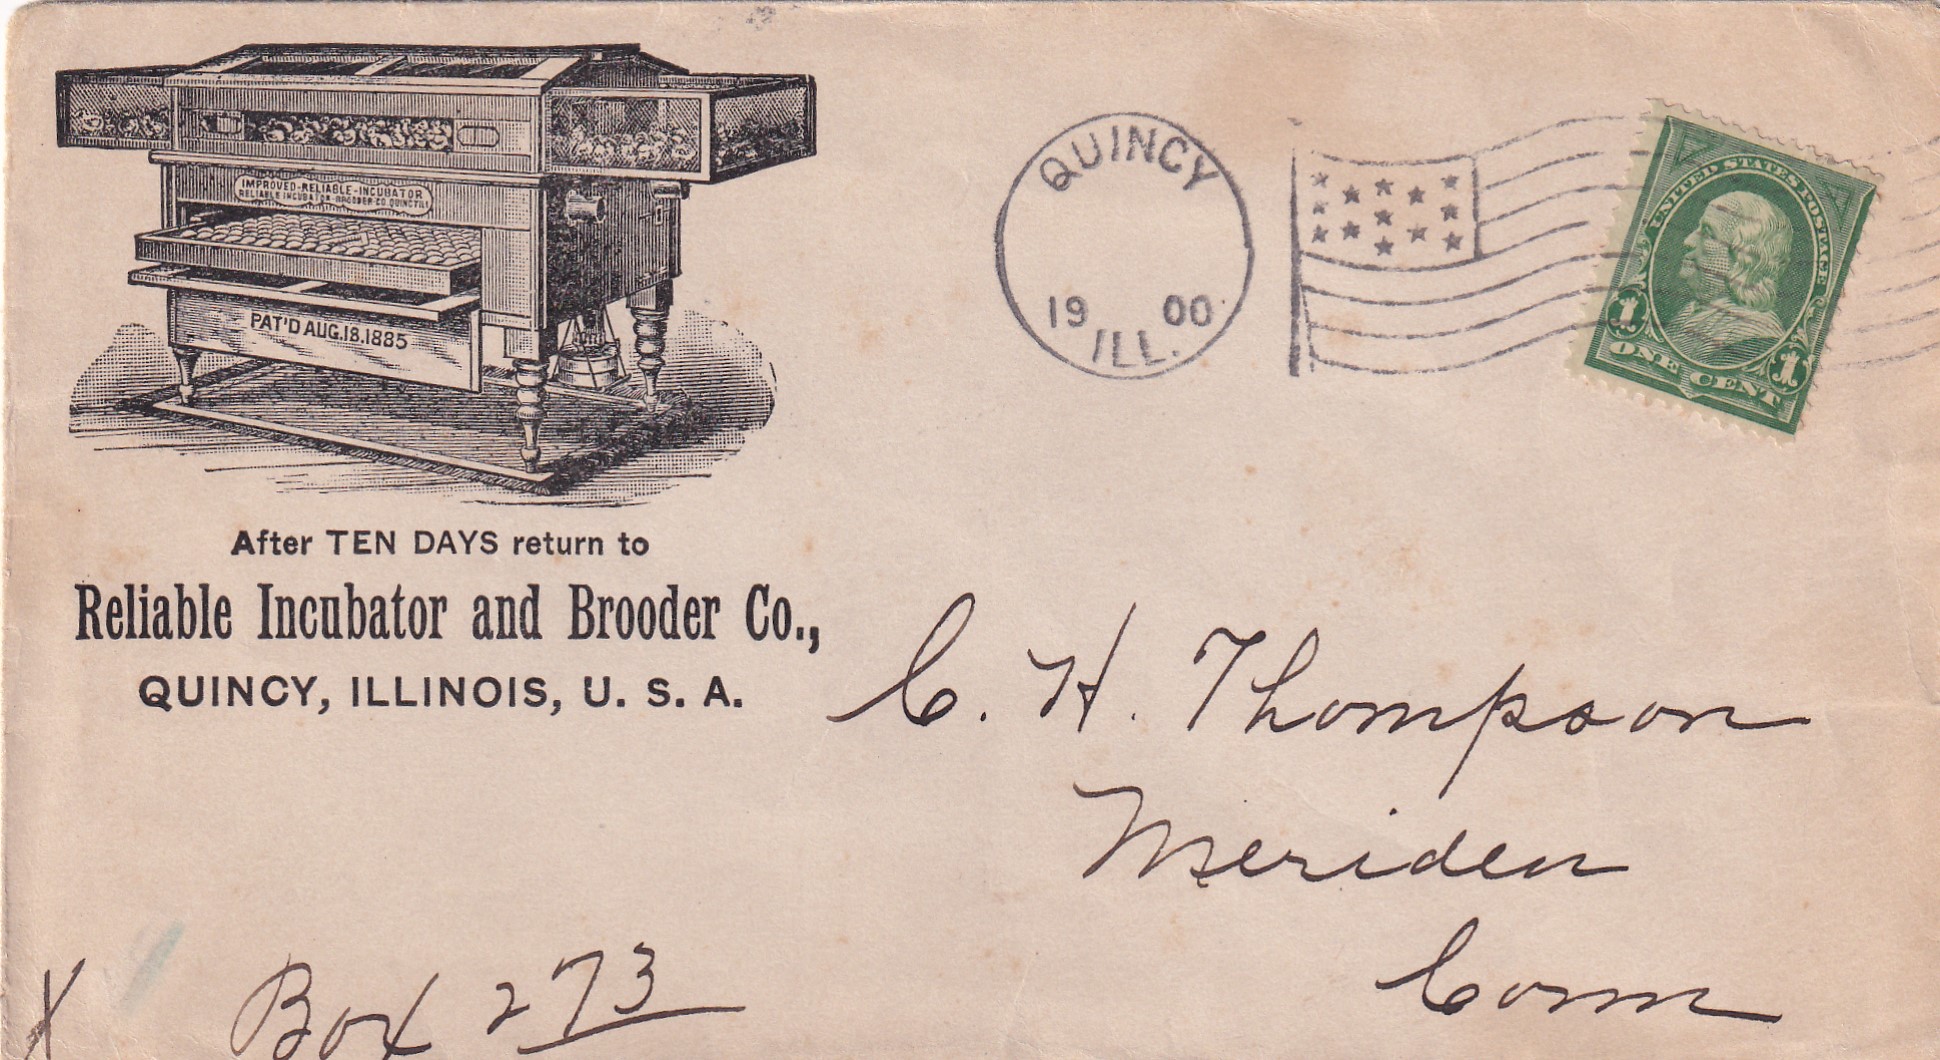 IMPROVED-RELIABLE-INCUBATOR
RELIABLE INCUBATOR-BROODER CO. QUINCY ILL
PAT'D AUG.18.1885
After TEN DAYS return to
Reliable Incubator and Brooder Co.,
QUINCY, ILLINOIS, U. S. A.
QUINCY
19 00
ILL.
UNITED STATES POSTAGE
1 1
ONE CENT
C. H. Thompson
Meriden
Conn
X Box 273